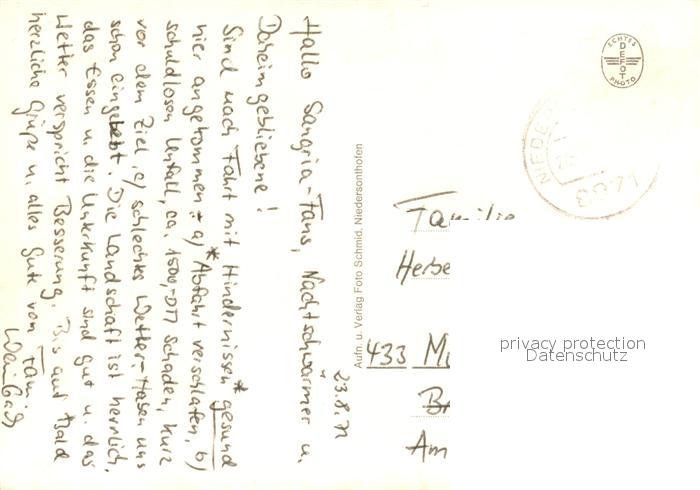 23.8.71
Hallo Sangria-Fans, Nachtschwärmer u.
Daheimgebliebene!
Sind nach Fahrt mit Hindernissen* gesund
hier angekommen. *a) Abfahrt verschlafen, b)
schuldlosen Unfall, ca. 1500,-DM Schaden, kurz
vor dem Ziel, c) schlechtes Wetter. - Haben uns
schon eingelebt. Die Landschaft ist herrlich,
das Essen u. die Unterkunft sind gut u. das
Wetter verspricht Besserung. Bis auf bald
herzliche Grüße u. alles Gute vom
Fam.
Aufn. u. Verlag Foto Schmid, Niedersonthofen
ECHTES
DEFOT
PHOTO
NIEDE
8971
Familie
Herbe
433 Mü
Am
privacy protection
Datenschutz